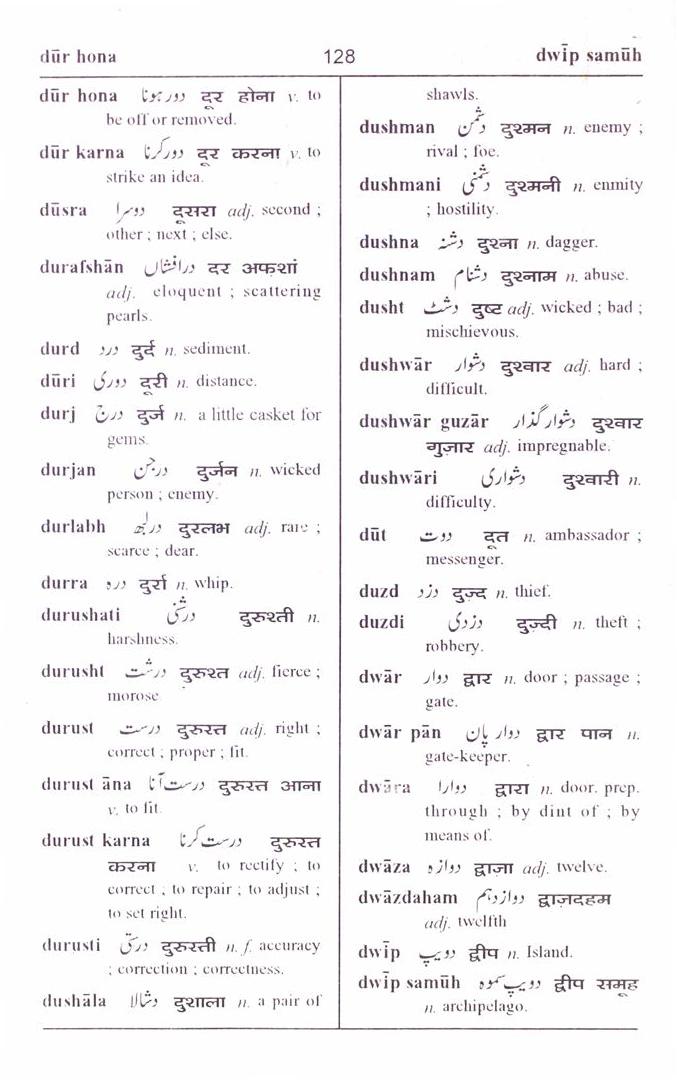 dūr hona
128
dwīp samūh
dūr hona دور ہونا दूर होना v. to
be off or removed.
dūr karna دور کرنا दूर करना v. to
strike an idea.
dūsra دوسرا दूसरा adj. second ;
other ; next ; else.
durafshān درافشاں दर अफशां
adj. eloquent ; scattering
pearls.
durd درد दुर्द n. sediment.
dūri دوری दूरी n. distance.
durj درج दुर्ज n. a little casket for
gems.
durjan درجن दुर्जन n. wicked
person ; enemy.
durlabh درلبھ दुरलभ adj. rare ;
scarce ; dear.
durra درہ दुर्रा n. whip.
durushati درشتی दुरुश्ती n.
harshness.
durusht درشت दुरुश्त adj. fierce ;
morose
durust درست दुरुस्त adj. right ;
correct ; proper ; fit.
durust āna درست آنا दुरुस्त आना
v. to fit.
durust karna درست کرنا दुरुस्त
करना v. to rectify ; to
correct ; to repair ; to adjust ;
to set right.
durusti درستی दुरुस्ती n. f. accuracy
; correction ; correctness.
dushāla دشالا दुशाला n. a pair of
shawls.
dushman دشمن दुश्मन n. enemy ;
rival ; foe.
dushmani دشمنی दुश्मनी n. enmity
; hostility.
dushna دشنہ दुश्ना n. dagger.
dushnam دشنام दुश्नाम n. abuse.
dusht دشٹ दुष्ट adj. wicked ; bad ;
mischievous.
dushwār دشوار दुश्वार adj. hard ;
difficult.
dushwār guzār دشوار گذار दुश्वार
गुज़ार adj. impregnable.
dushwāri دشواری दुश्वारी n.
difficulty.
dūt دوت दूत n. ambassador ;
messenger.
duzd دزد दुज़्द n. thief.
duzdi دزدی दुज़्दी n. theft ;
robbery.
dwār دوار द्वार n. door ; passage ;
gate.
dwār pān دوار پان द्वार पान n.
gate-keeper.
dwāra دوارا द्वारा n. door. prep.
through ; by dint of ; by
means of.
dwāza دوازہ द्वाज़ा adj. twelve.
dwāzdaham دوازدہم द्वाज़दहम
adj. twelfth
dwīp دویپ द्वीप n. Island.
dwīp samūh دویپ سموہ द्वीप समूह
n. archipelago.